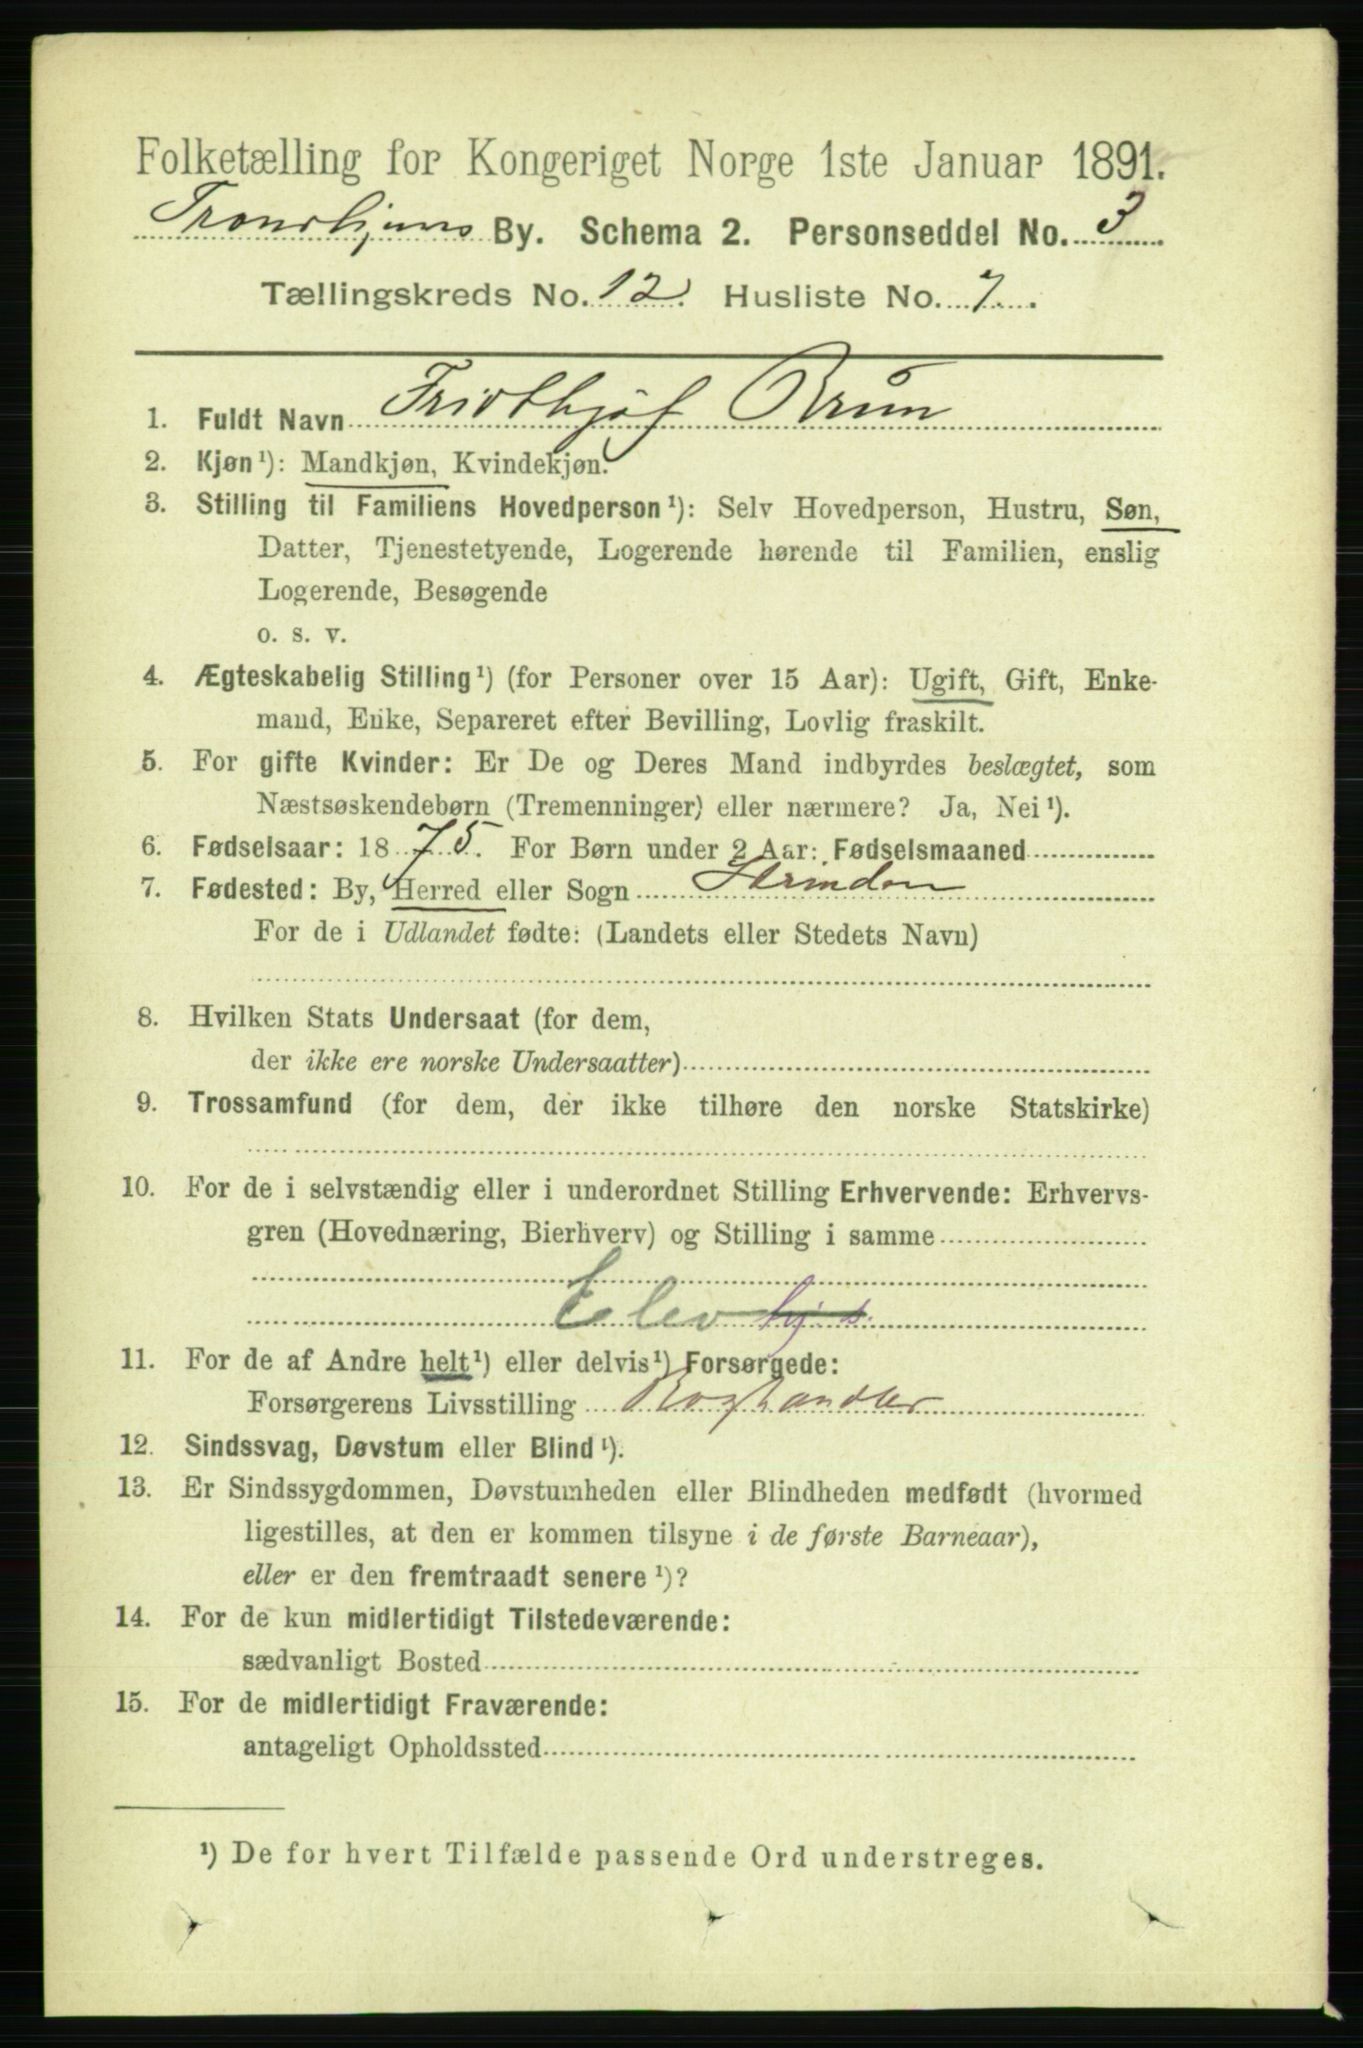 Folketælling for Kongeriget Norge 1ste Januar 1891.
Trondhjems By. Schema 2. Personseddel No. 3
Tællingskreds No. 12. Husliste No. 7.
1. Fuldt Navn Fridthjof Brun
2. Kjøn¹): Mandkjøn, Kvindekjøn.
3. Stilling til Familiens Hovedperson¹): Selv Hovedperson, Hustru, Søn,
Datter, Tjenestetyende, Logerende hørende til Familien, enslig
Logerende, Besøgende
o. s. v.
4. Ægteskabelig Stilling¹) (for Personer over 15 Aar): Ugift, Gift, Enke-
mand, Enke, Separeret efter Bevilling, Lovlig fraskilt.
5. For gifte Kvinder: Er De og Deres Mand indbyrdes beslægtet, som
Næstsøskendebørn (Tremenninger) eller nærmere? Ja, Nei¹).
6. Fødselsaar: 1875. For Børn under 2 Aar: Fødselsmaaned
7. Fødested: By, Herred eller Sogn Strinden
For de i Udlandet fødte: (Landets eller Stedets Navn)
8. Hvilken Stats Undersaat (for dem,
der ikke ere norske Undersaatter)
9. Trossamfund (for dem, der ikke tilhøre den norske Statskirke)
10. For de i selvstændig eller i underordnet Stilling Erhvervende: Erhvervs-
gren (Hovednæring, Bierhverv) og Stilling i samme
Elev
11. For de af Andre helt¹) eller delvis¹) Forsørgede:
Forsørgerens Livsstilling Boghandler
12. Sindssvag, Døvstum eller Blind¹).
13. Er Sindssygdommen, Døvstumheden eller Blindheden medfødt (hvormed
ligestilles, at den er kommen tilsyne i de første Barneaar),
eller er den fremtraadt senere¹)?
14. For de kun midlertidigt Tilstedeværende:
sædvanligt Bosted
15. For de midlertidigt Fraværende:
antageligt Opholdssted
¹) De for hvert Tilfælde passende Ord understreges.